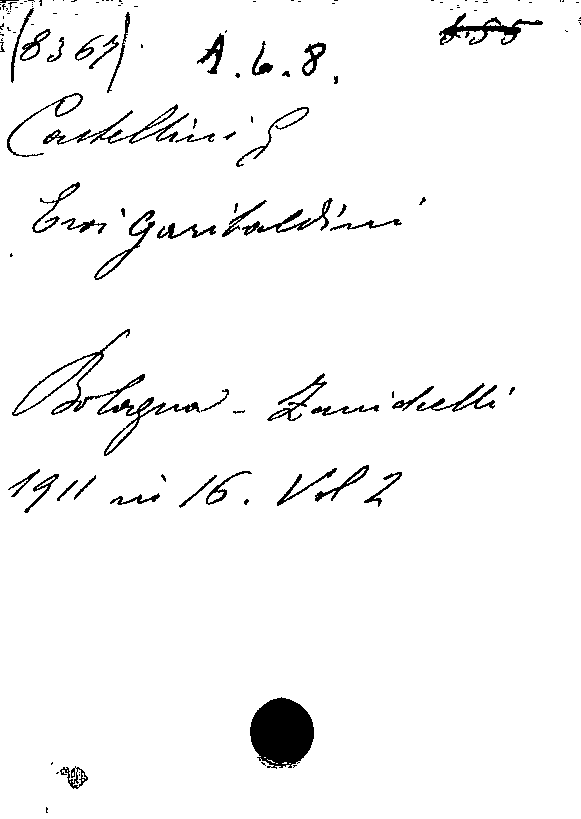 (8367). A.6.8.
Castellini G
Eroi Garibaldini
Bologna - Zanichelli
1911 in 16. Vol 2